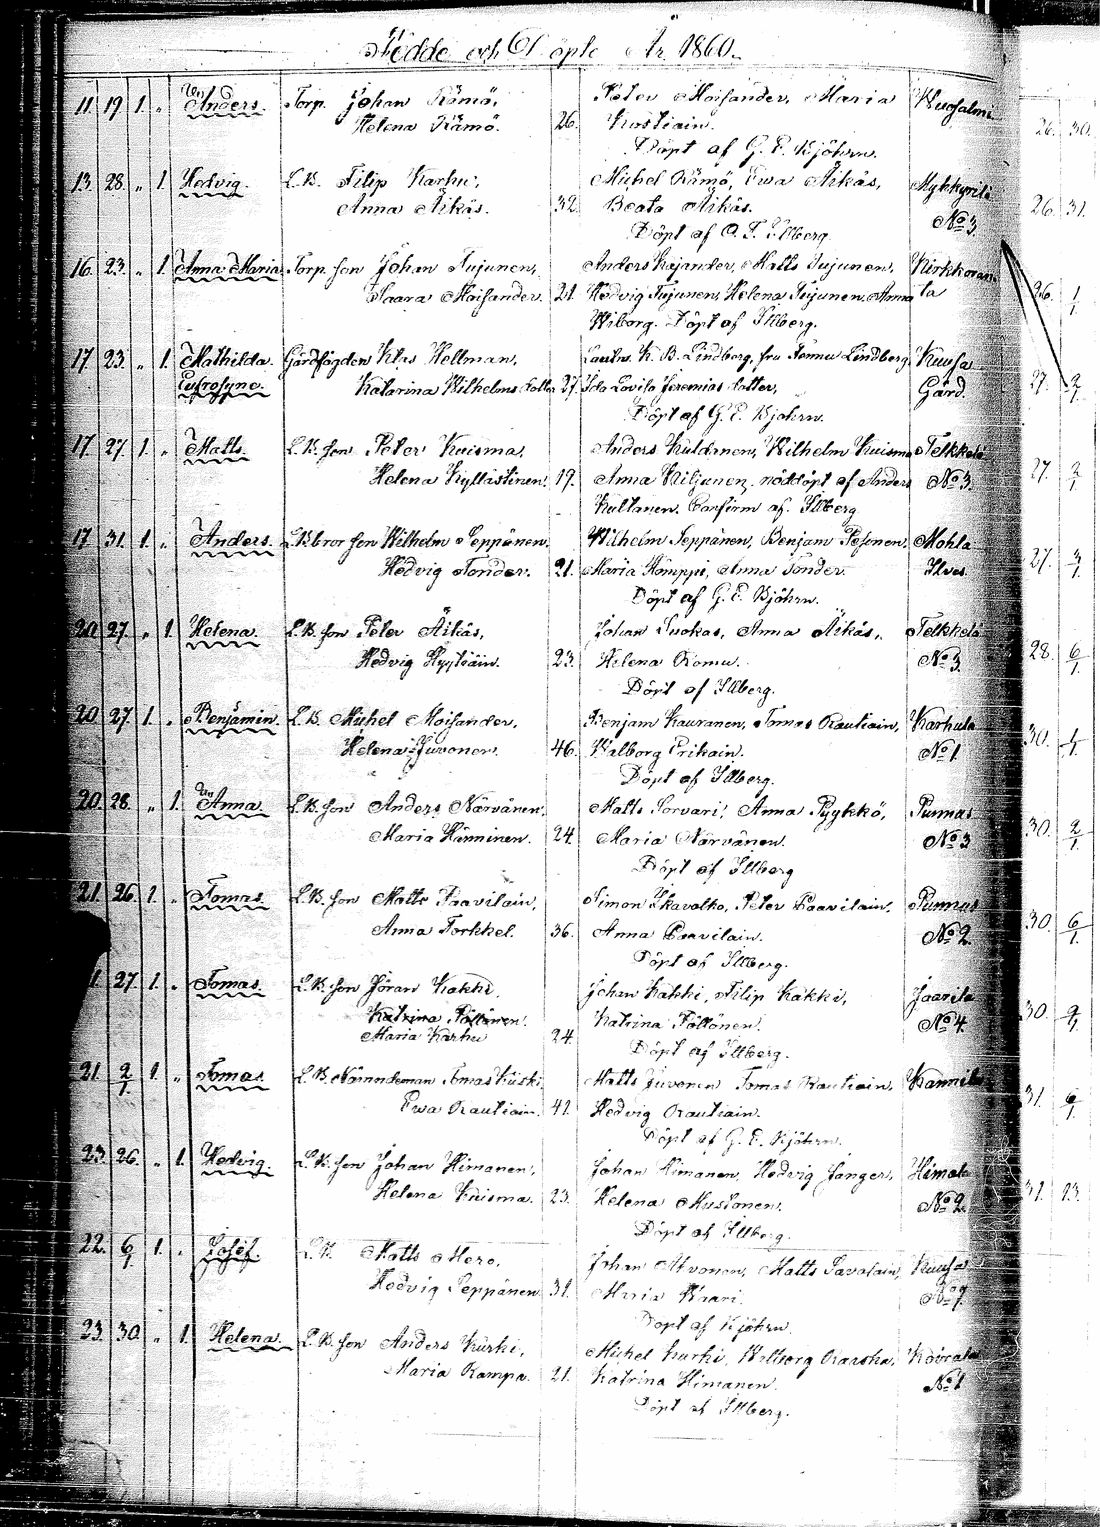 Födde och Döpte År 1860.
11. 19 1. " Anders. Torp. Johan Rämö, Peter Moisander, Maria Kuosalmi
Helena Rämö. 26. Kostiain.
Döpt af G. E. Bjöhrn.
13. 28. " 1. Hedvig. L.B. Filip Karhu, Michel Rämö, Ewa Äikäs, Mykkyrilä
Anna Äikäs. 32. Beata Äikäs. No 3.
Döpt af O. F. Illberg.
16. 23. " 1. Anna Maria Torp. son Johan Tujunen, Anders Kajander, Matts Tujunen, Kirkkoran
Saara Moisander. 21. Hedvig Tujunen, Helena Tujunen, Anna ta
Wiborg. Döpt af Illberg.
17. 23. " 1. Mathilda Gårdsfogden Klas Hellman, K. B. Lindberg, fru Lindberg Kuusa
Eufrosyne. Katarina Wilhelms dotter 27. Ida Lovisa Jeremias dotter, Gård.
Döpt af G. E. Bjöhrn.
17. 27. 1. " Matts. L.B. son Peter Kuisma, Anders Kuldanen, Wilhelm Kuisma Telkkälä
Helena Kyllästinen. 19. Anna Kiljunen, nöddöpt af Anders No 3.
Kultanen. Confirm. af Illberg
17. 31. 1. " Anders. L.B. bror son Wilhelm Seppänen, Wilhelm Seppänen, Benjam Pesonen, Mohla
Hedvig Tonder. 21. Maria Kömppi, Anna Tonder. Ilves.
Döpt af G. E. Bjöhrn.
20. 27. " 1. Helena. L.B. son Peter Äikäs, Johan Suokas, Anna Äikäs, Telkkälä
Hedvig Hyytiäin. 23. Helena Romu. No 3.
Döpt af Illberg.
20. 27. 1. " Benjamin. L.B. Michel Moisander, Benjam Kauranen, Tomas Rautiain, Karhula
Helena Juvonen. 46. Walborg Erikain. No 1
Döpt af Illberg.
20. 28. " 1. Anna. L.B. son Anders Närvänen, Matts Sorvari, Anna Pyykkö, Punnus
Maria Hänninen. 24. Maria Närvänen. No 3
Döpt af Illberg
21. 26. 1. " Tomas. L.B. son Matts Paavilain, Simon Skavalka, Peter Paavilain, Punnus
Anna Torkkel. 36. Anna Paavilain. No 2.
Döpt af Illberg.
1. 27. 1. " Tomas. L.B. son Jöran Kakki. Johan Kakki, Filip Kakki, Jaarila
Katrina Pöllönen. Katrina Pöllönen. No 4.
Maria Karhu 24. Döpt af Illberg.
21. 2/1 1. " Tomas L.B. Nämndeman Tomas Kiiski Matts Juvonen Tomas Rautiain, Kannila
Ewa Rautiain. 42. Hedvig Rautiain.
Döpt af G. E. Bjöhrn.
23. 26. " 1. Hedvig. L.B. son Johan Himanen, Johan Himanen, Hedvig Janger, Himala
Helena Kuisma. 23. Helena Mustonen. No 2.
Döpt af Illberg.
22. 6/1 1. " Josef. L.B. Matts Mero, Johan Ahvonen, Matts Savolain, Kuusa
Hedvig Seppänen 31. Maria No 9.
Döpt af Bjöhrn.
23. 30. " 1. Helena. L.B. son Anders Kurki, Michel Kurki, Walborg Karska, Koirala
Maria Kampa. 21. Katrina Himanen. No 1
Döpt af Illberg.
26. 30.
26. 31.
26. 1/1
27. 2/1
27. 2/1
27. 3/1
28. 6/1
30. 1/1
30. 2/1
30. 6/1
30. 9/1
31. 6/1
31. 13.